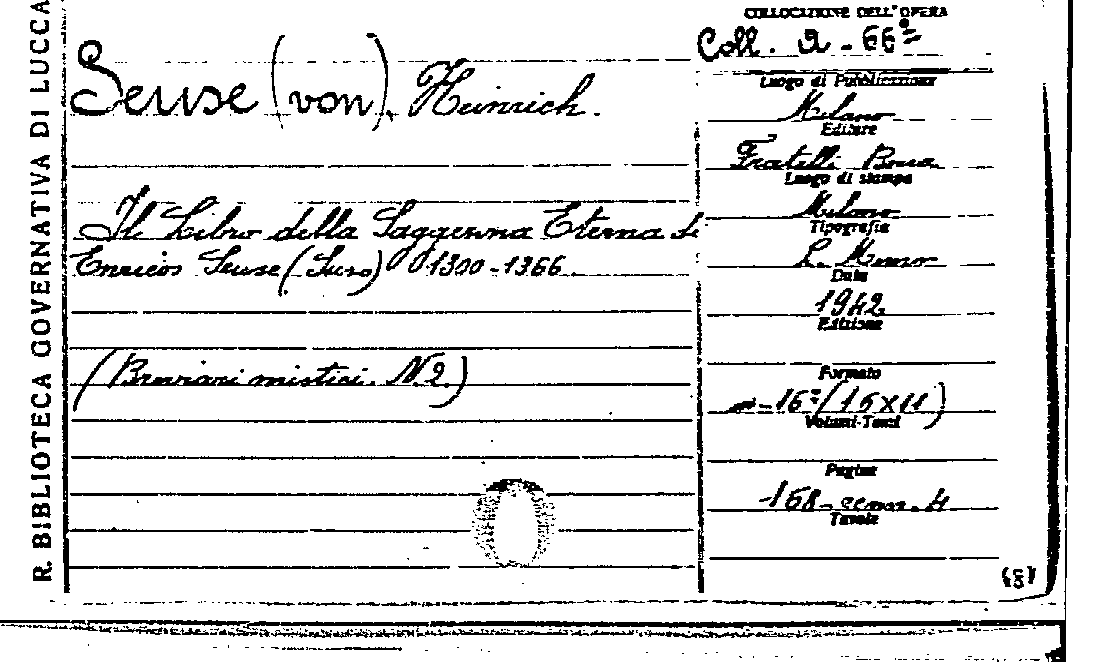 R. BIBLIOTECA GOVERNATIVA DI LUCCA
Seuse (von), Heinrich.
Il Libro della Saggezza Eterna di
Enrico Seuse (Suso) 1300-1366.
(Breviari mistici. N.2.)
COLLOCAZIONE DELL'OPERA
Coll. 2-66
Luogo di Pubblicazione
Milano
Editore
Fratelli Bocca
Luogo di stampa
Milano
Tipografia
Data
1942
Edizione
Formato
-16°(16x11)
Volumi-Tomi
Pagine
-168-
Tavole